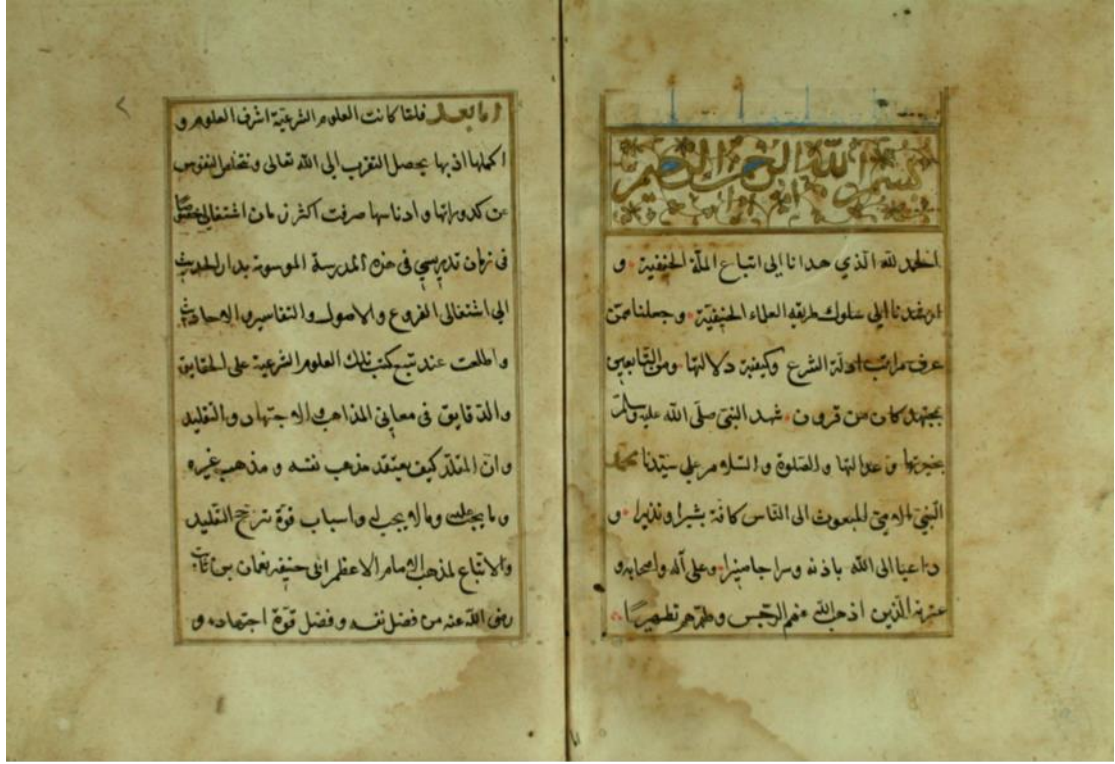 بسم الله الرحمن الرحيم
الحمد لله الذي هدانا إلى اتباع الملة الحنفية و
ارشدنا الى سلوك طريقة العلماء الحنيفية وجعلنا ممن
عرف مراتب ادلة الشرع وكيفية دلالتها ومن التابعين
بمجتهد كان من قرون شهد النبي صلى الله عليه وسلم
بخيريتها و عدالتها والصلوة والسلام على سيدنا محمد
النبي الامي المبعوث الى الناس كافة بشيرا ونذيرا و
داعيا الى الله باذنه وسراجا منيرا وعلى آله واصحابه و
عترته الذين اذهب الله عنهم الرجس وطهرهم تطهيرا
٢
اما بعد فلما كانت العلوم الشرعية اشرف العلوم و
اكملها اذ بها يحصل التقرب الى الله تعالى و النفوس
عن كدوراتها و ادناسها صرفت اكثر زمان اشتغالي خصوصا
في زمان تدريسي في هذه المدرسة الموسومة بدار الحديث
الى اشتغالي الفروع والاصول والتفاسير والاحاديث
واطلعت عند تتبع كتب تلك العلوم الشرعية على الحقايق
والدقايق في معاني المذاهب والاجتهاد والتقليد
وان المقلد كيف يعتقد مذهب نفسه و مذهب غيره
و ما يجب عليه وما لا يجب و اسباب قوة ترجح التقليد
والاتباع لمذهب الامام الاعظم ابي حنيفة نعمان بن ثابت
رضي الله عنه من فضل نفسه و فضل قوة اجتهاده و